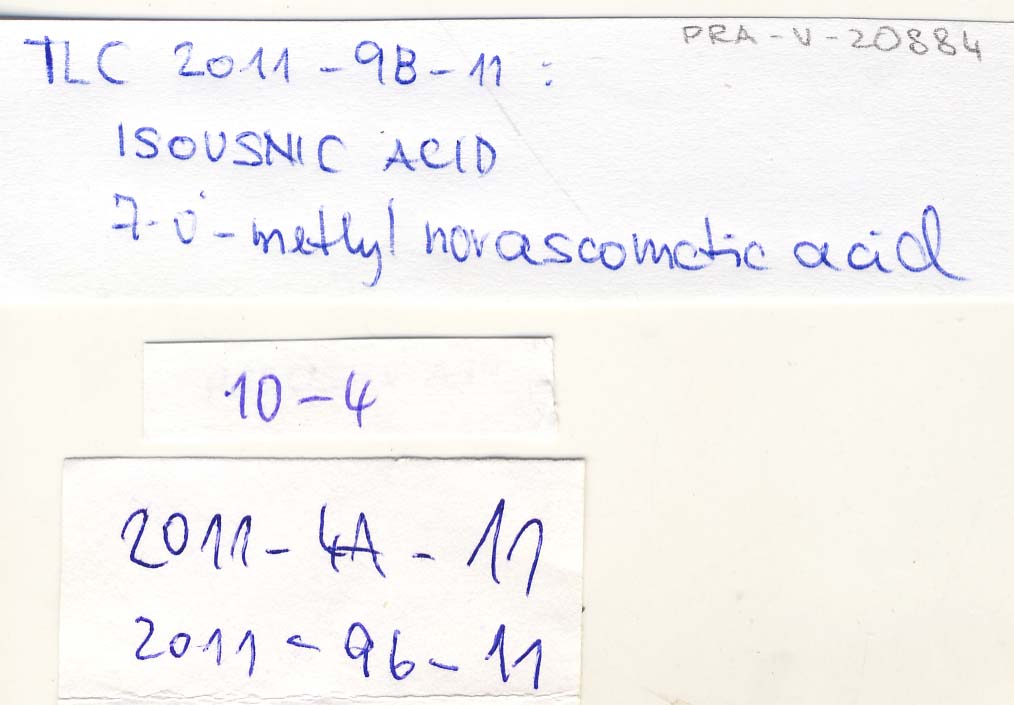 PRA-V-20884
TLC 2011-9B-11:
ISOUSNIC ACID
7-O-methyl norascomatic acid
10-4
2011-4A-11
2011-9b-11